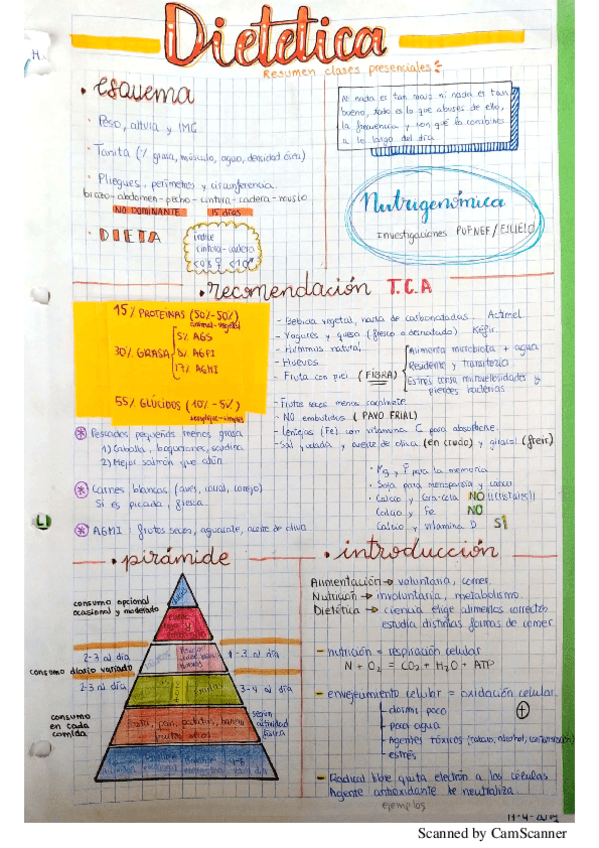 Dietética
Resumen clases presenciales
H.
• esquema
- Peso, altura y IMC
- Tanita (% grasa, músculo, agua, densidad ósea)
- Pliegues, perímetros y circunferencia.
brazo-abdomen-pecho-cintura-cadera-muslo
NO DOMINANTE 15 días
- DIETA
índice
cintura-cadera
Ni nada es tan malo ni nada es tan
bueno, todo es lo que abuses de ello,
la frecuencia y con qué lo combines
a lo largo del día.
Nutrigenómica
investigaciones
• recomendación T.C.A
15% PROTEINAS (50%-50%)
animal-vegetal
5% AGS
30% GRASA 8% AGPI
17% AGMI
55% GLÚCIDOS (10% - 5%)
complejos-simples
* Pescados pequeños menos grasa
1) Caballa, boquerones, sardina
2) Mejor salmón que atún
* Carnes blancas (aves, pavo, conejo)
Si es picada, fresca
* AGMI: frutos secos, aguacate, aceite de oliva
- Bebida vegetal, nada de carbonatadas. Actimel
- Yogures y queso (fresco o desnatado) Kéfir
- Hummus natural
- Huevos
- Fruta con piel (FIBRA)
Alimenta microbiota + agua
Residente y transitoria
Estrés causa
pierdes bacterias
- Frutos secos menos
- NO embutidos (PAVO FRIAL)
- Lentejas (Fe) con vitamina C para absorberse.
- Sal yodada y aceite de oliva (en crudo) y girasol (freír)
para la memoria
- Soja para menopausia y cáncer
- Calcio y Coca-cola NO ((cristales))
Calcio y Fe NO
Calcio y vitamina D SÍ
L
• pirámide
consumo opcional
ocasional y moderado
2-3 al día
1-3 al día
consumo diario variado
2-3 al día
3-4 al día
consumo
en cada
comida
según
actividad
física
• introducción
Alimentación → voluntaria, comer.
Nutrición → involuntaria, metabolismo.
Dietética → ciencia elige alimentos correctos
estudia distintas formas de comer
- nutrición = respiración celular
N + O₂ = CO₂ + H₂O + ATP
- envejecimiento celular = oxidación celular.
dormir poco
poco agua
Agentes tóxicos (tabaco, alcohol, contaminación)
estrés
- Radical libre quita electrón a las células
Agente antioxidante le neutraliza
ejemplos
Scanned by CamScanner